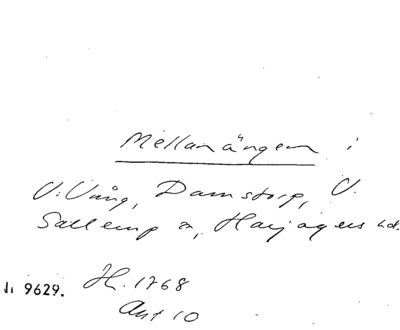 Mellanängen i
V. Vång, Damstorp, V.
Sallerup sn, Harjagers hd.
9629. Hh. 1768
Akt 10